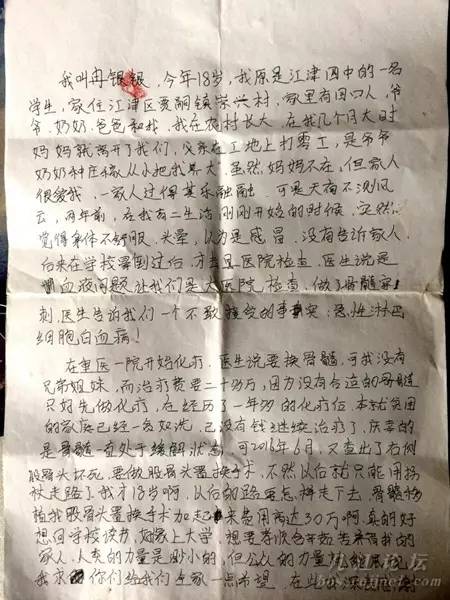 我叫冉银银，今年18岁，我原是江津四中的一名
学生，家住江津区贾嗣镇学兴村，家里有四口人，爷
爷、奶奶、爸爸和我，我在农村长大，在我几个月大时
妈妈就离开了我们，父亲在工地上打零工，是爷爷
奶奶种庄稼从小把我养大，虽然妈妈不在，但家人
很爱我，一家人过得其乐融融，可是天有不测风
云，两年前，在我高二生活刚刚开始的时候，突然
觉得身体不舒服、头晕，以为是感冒，没有告诉家人
后来在学校晕倒过后，才去医院检查，医生说是
血液问题让我们去大医院检查，做了骨髓穿
刺医生告诉我们一个不敢接受的事实：急性淋巴
细胞白血病！
在重医一院开始化疗，医生说要换骨髓，可我没有
兄弟姐妹，而治疗费要二十多万，因为没有合适的骨髓
只好先做化疗，在经历了一年多的化疗后，本就贫困
的家庭已经一贫如洗，已没有钱继续治疗了，庆幸的
是骨髓一直处于缓解状态，可2016年6月，又查出了右侧
股骨头坏死，要做股骨头置换手术，不然以后就只能用拐
杖走路了，我才18岁啊，以后的路要怎样走下去，骨髓移
植我股骨头置换手术加起来费用高达30万啊，真的好
想回学校读书，好想上大学，想要
家人，人类的力量是渺小的，但公众的力量
我求你们给我们这家一点希望，在此